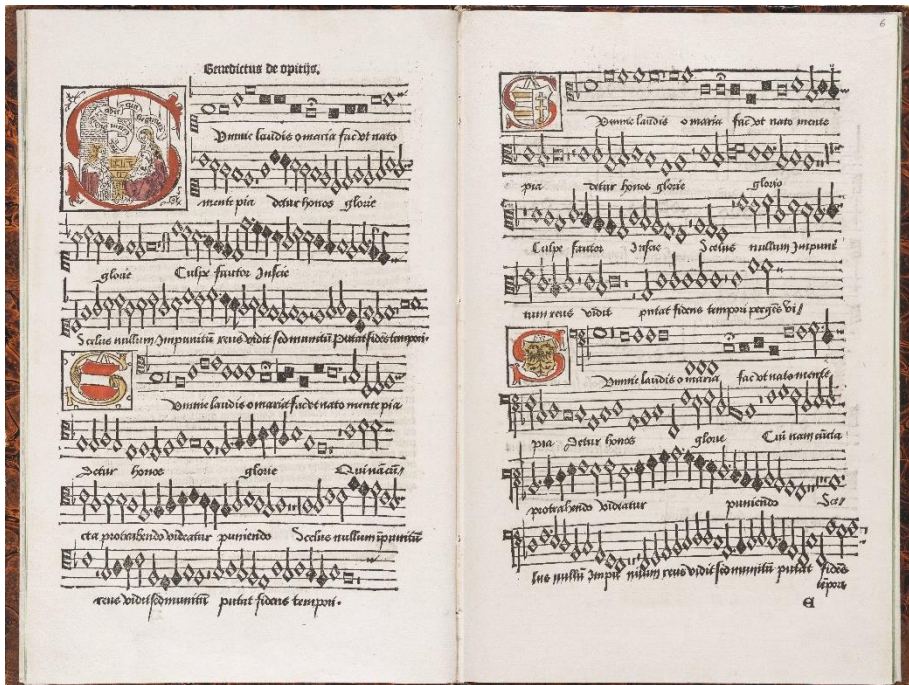 Benedictus de opitijs.
Summe laudis o maria fac vt nato
mente pia detur honos glorie
glorie Culpe fautor Inscie
Scelus nullum Impunitū reus vidit sed munitū putat fidēs tempori.
Summe laudis o maria fac vt nato mente pia
Detur honos glorie Qui nā cū/
cta protrahendo videatur puniendo Scelus nullum īpunitū
reus vidit sed munitū putat fidens tempori.
6
Summe laudis o maria fac vt nato mente
pia detur honos glorie glorie
Culpe fautor Inscie Scelus nullum Impuni
tum reus vidit putat fidens tempori
Summe laudis o maria fac vt nato mente
pia Detur honos glorie Cui nam cūcta
protrahendo videatur puniendo Sce/
lus nullū Impu nitum reus vidit sed munitū putat fidēs
tēpori